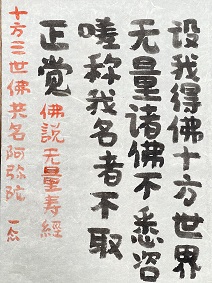 设我得佛十方世界
无量诸佛不悉咨
嗟称我名者不取
正觉
佛説无量寿經
十方三世佛共名阿弥陀 一念